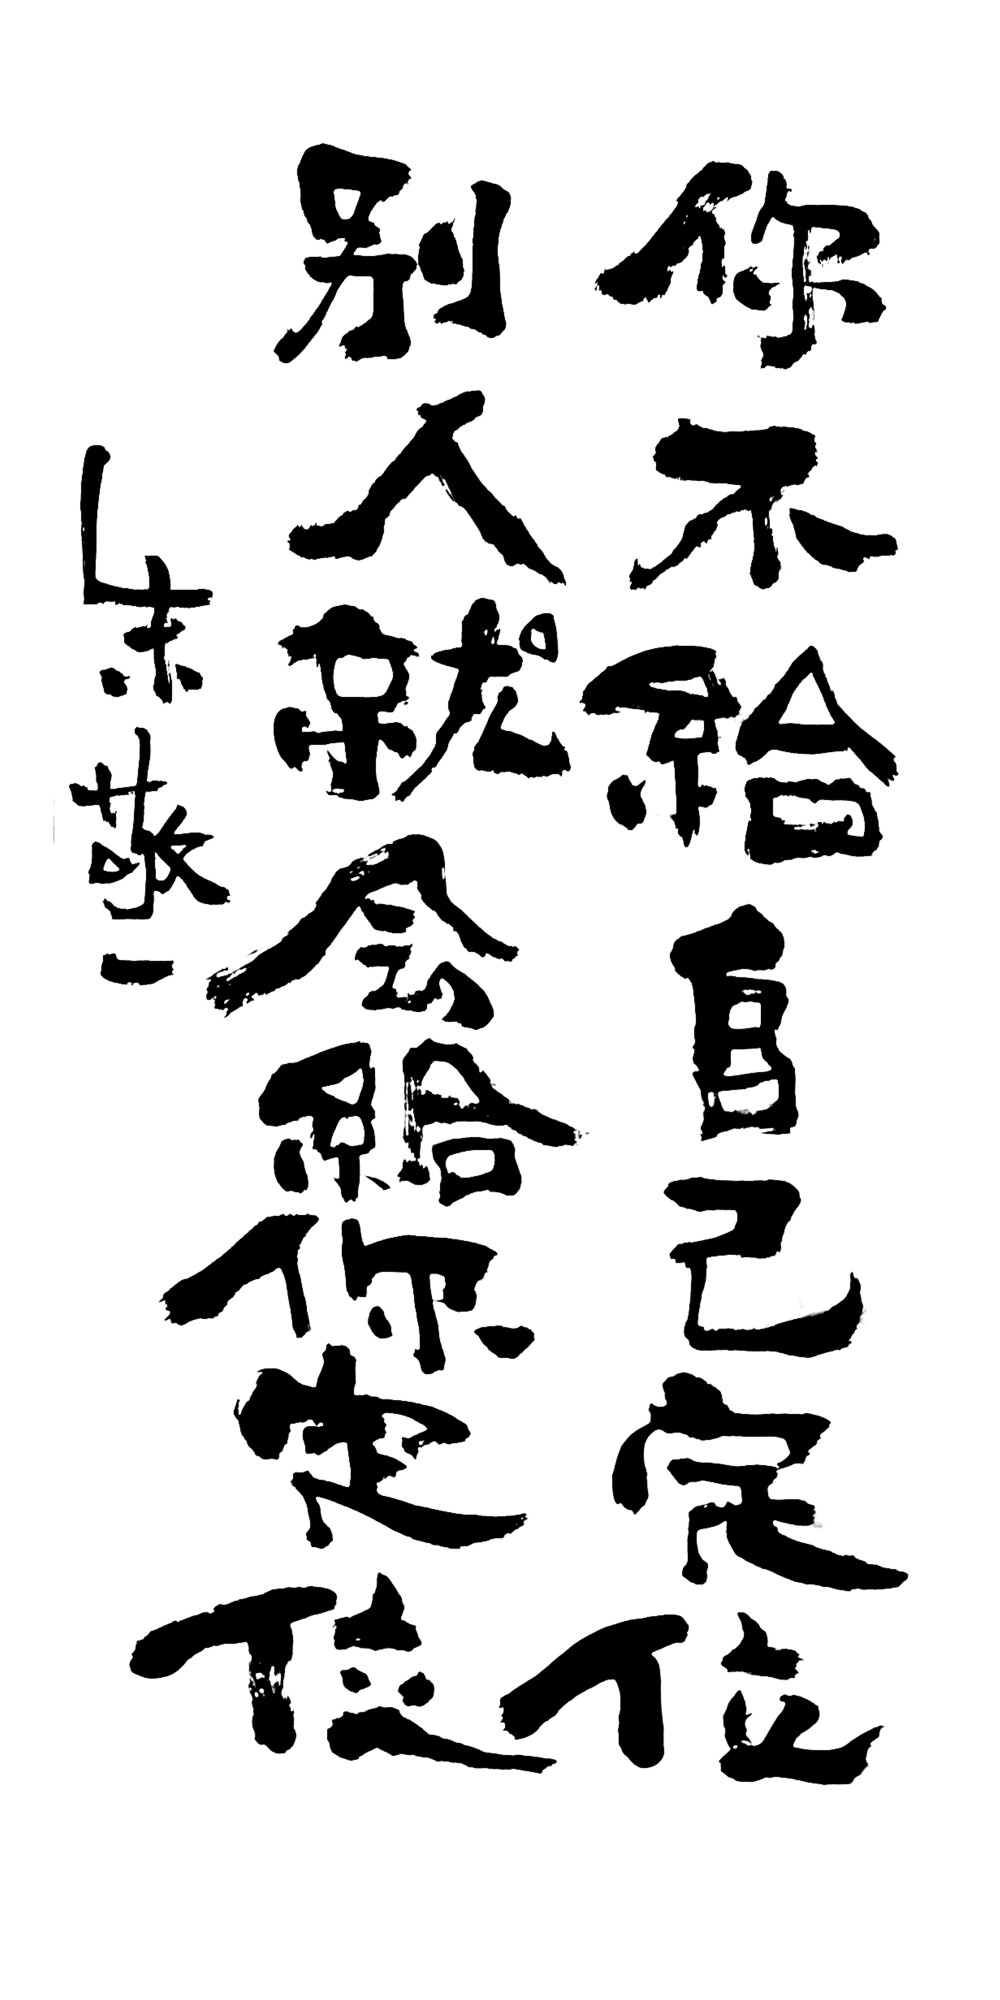 你不給自己定位
别人就会給你定位
朱敬一